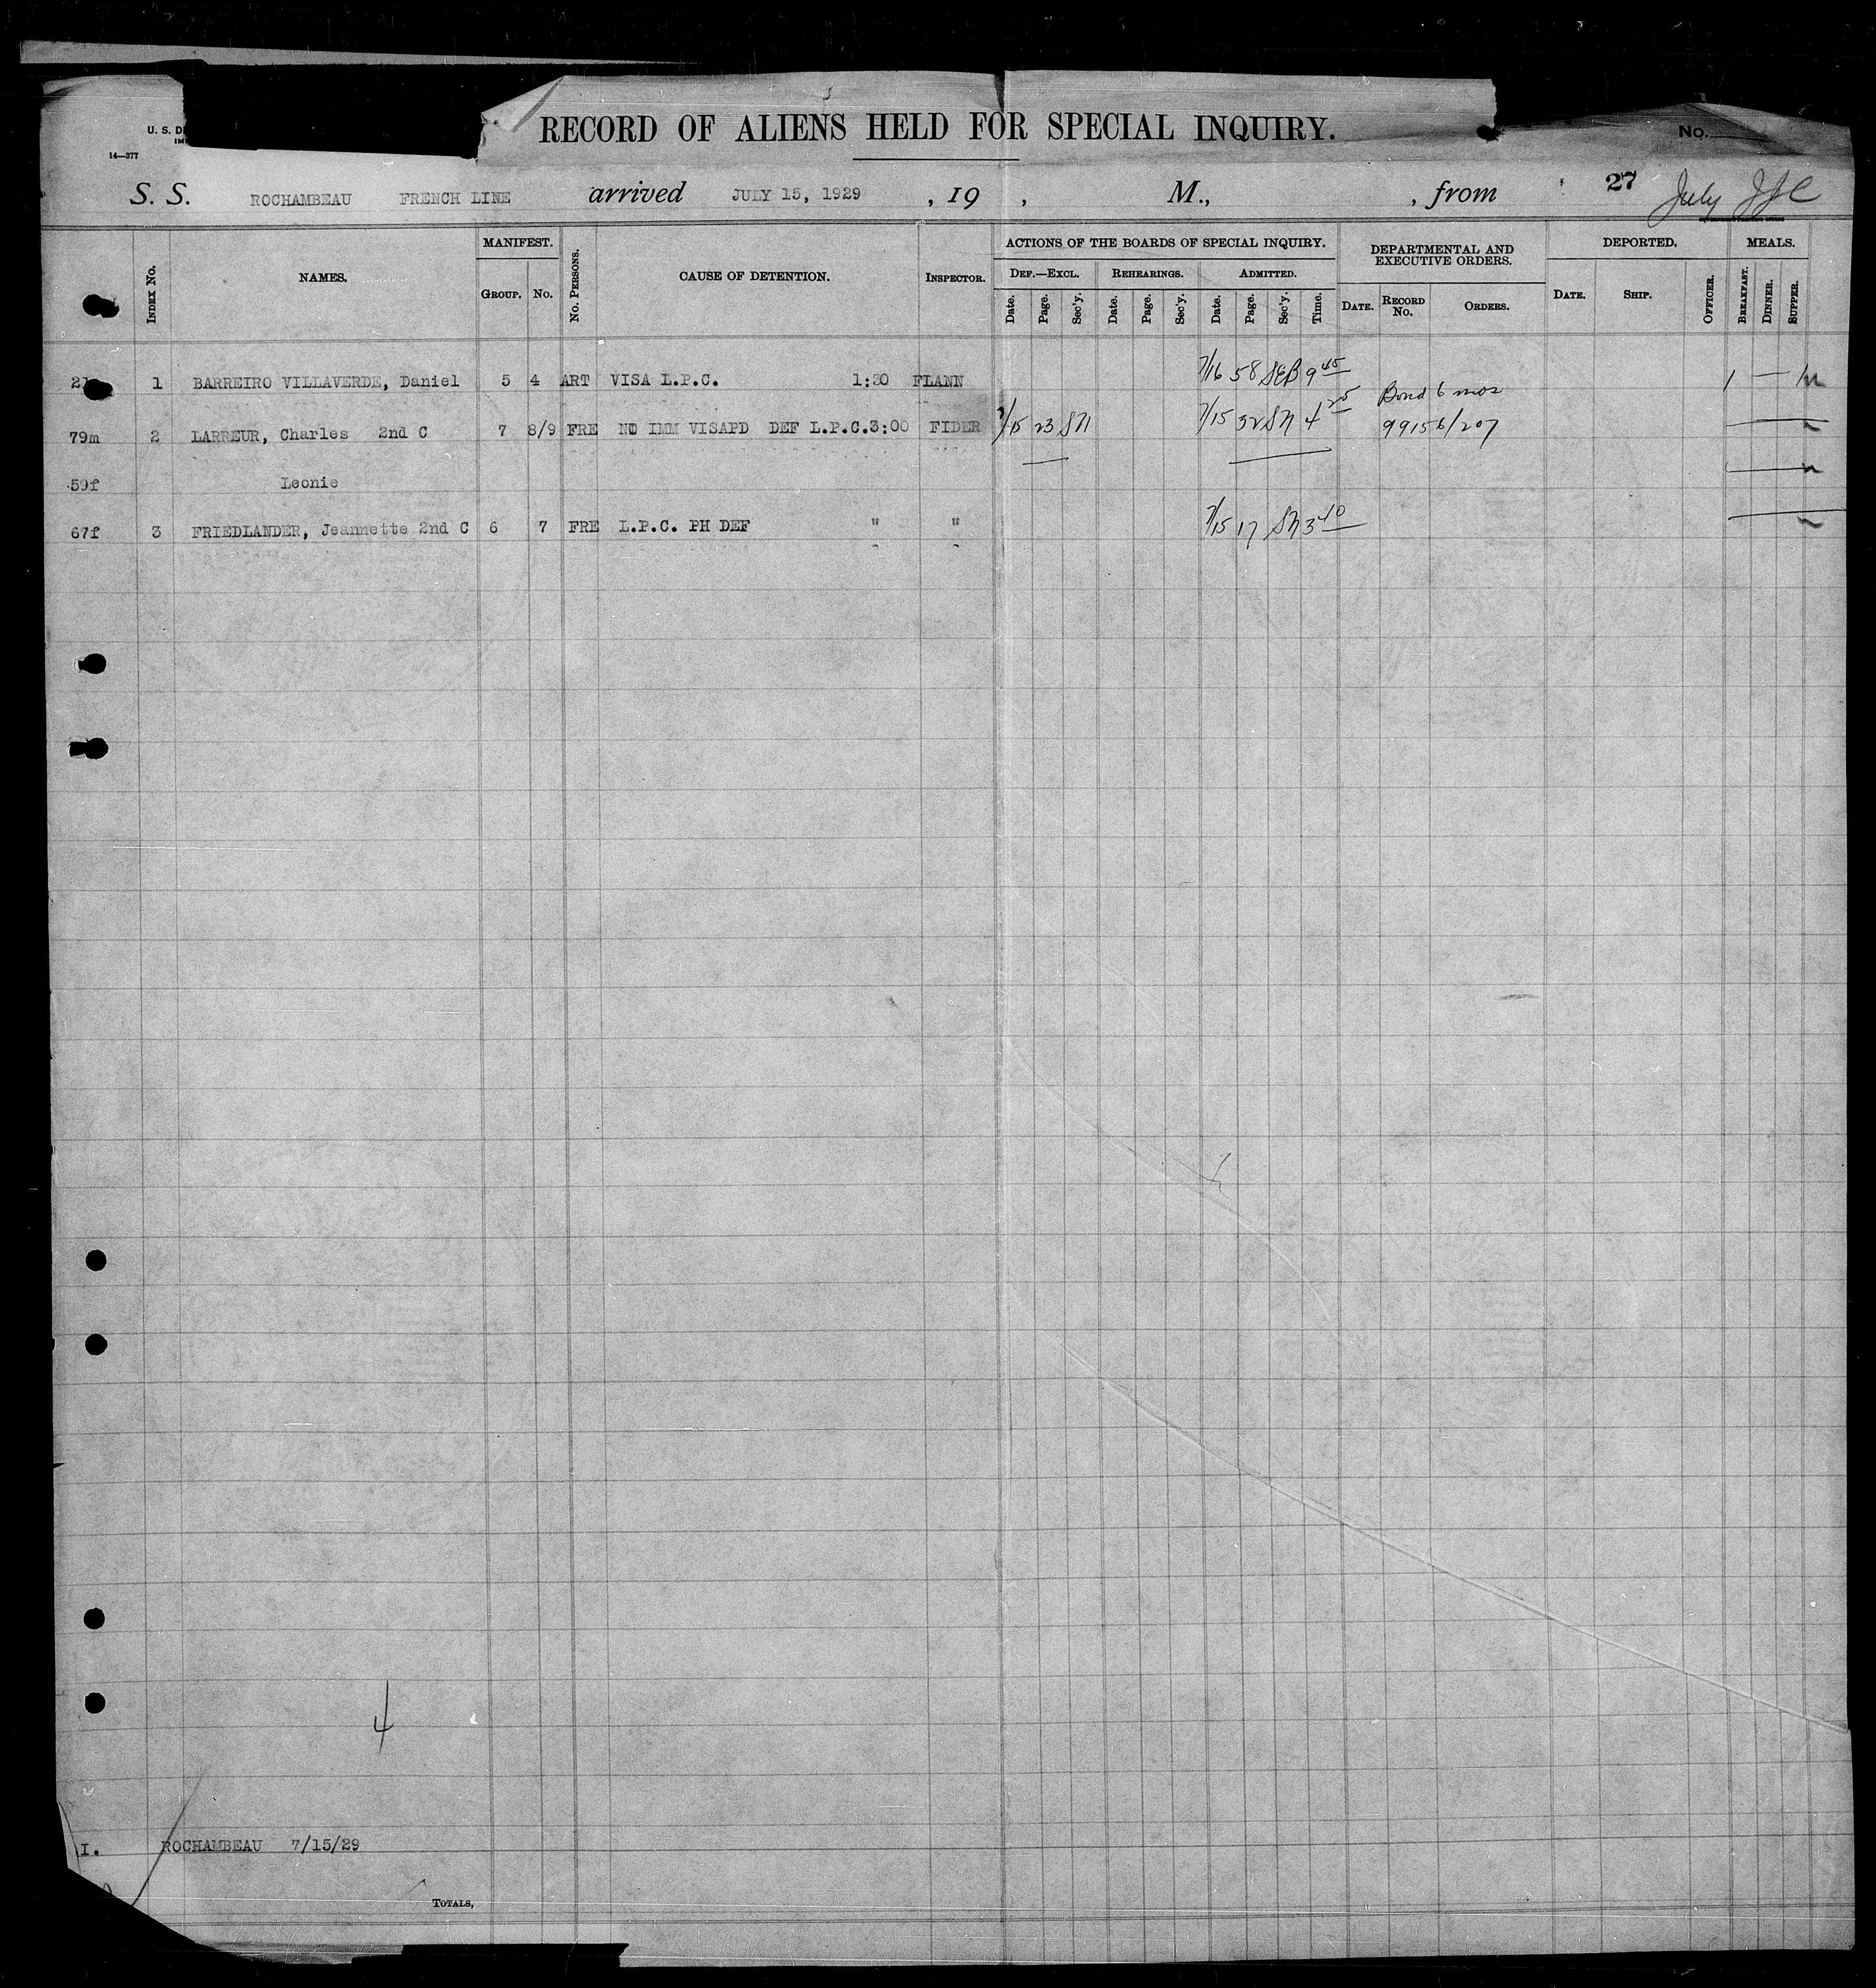 RECORD OF ALIENS HELD FOR SPECIAL INQUIRY.
U. S. D
IM
No.
14—377
S. S. ROCHAMBEAU FRENCH LINE arrived JULY 15, 1929 , 19 , M., , from 27 July
MANIFEST. ACTIONS OF THE BOARDS OF SPECIAL INQUIRY. DEPARTMENTAL AND EXECUTIVE ORDERS. DEPORTED. MEALS.
Index No. NAMES. Group. No. No. Persons. CAUSE OF DETENTION. Inspector. Def.—Excl. Rehearings. Admitted.
Date. Page. Sec'y. Date. Page. Sec'y. Date. Page. Sec'y. Time. Date. Record No. Orders. Date. Ship. Officer. Breakfast. Dinner. Supper.
1 BARREIRO VILLAVERDE, Daniel 5 4 ART VISA L.P.C. 1:30 FLANN 7/16 58 SEB 9 45
Bond 6 mos
79m 2 LARREUR, Charles 2nd C 7 8/9 FRE NO IMM VISAPD DEF L.P.C.3:00 FIDER 7/15 23 SN 7/15 32 SN 4 25 99156/207
59f Leonie
67f 3 FRIEDLANDER, Jeannette 2nd C 6 7 FRE L.P.C. PH DEF " " 7/15 17 SN 3 40
4
I. ROCHAMBEAU 7/15/29
Totals,